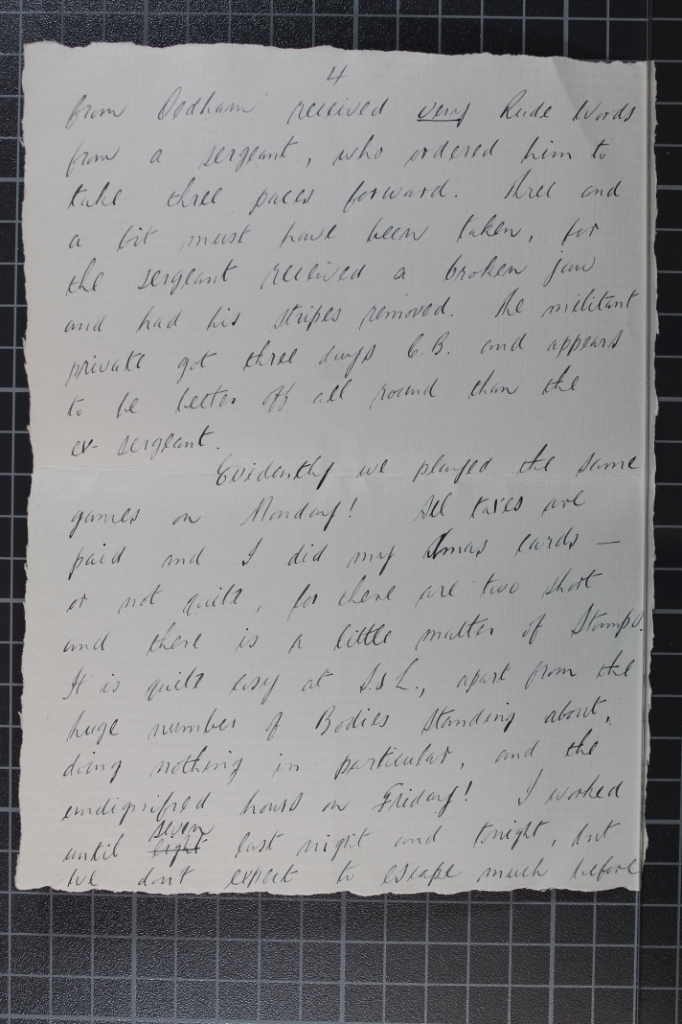 4
from Oldham received very Rude Words
from a sergeant, who ordered him to
take three paces forward. Three and
a bit must have been taken, for
the sergeant received a broken jaw
and had his stripes removed. The militant
private got three days C.B. and appears
to be better off all round than the
ex-sergeant.
Evidently we played the same
games on Monday! All taxes are
paid and I did my Xmas cards —
or not quite, for there are two short
and there is a little matter of Stamps.
It is quite easy at S.&L., apart from the
huge number of Bodies standing about,
doing nothing in particular, and the
undignified hours on Friday! I worked
until eight seven last night and tonight, but
we don't expect to escape much before